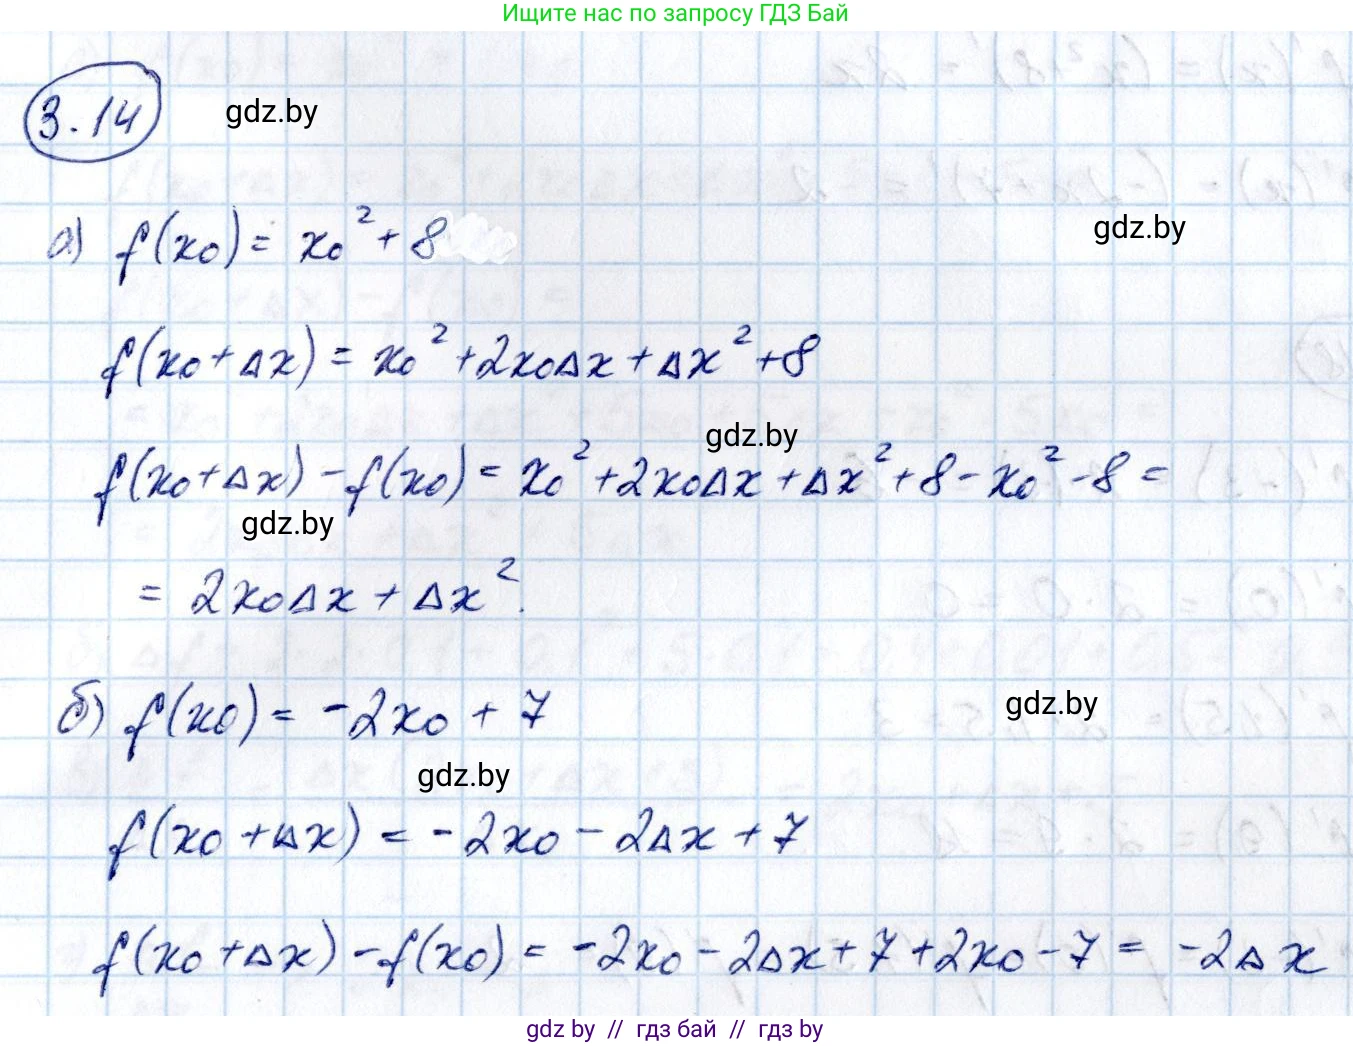 Ищите нас по запросу ГДЗ Бай
3.14
gdz.by
а) f(x₀) = x₀² + 8
gdz.by
f(x₀ + Δx) = x₀² + 2x₀Δx + Δx² + 8
gdz.by
f(x₀ + Δx) - f(x₀) = x₀² + 2x₀Δx + Δx² + 8 - x₀² - 8 =
gdz.by
= 2x₀Δx + Δx².
б) f(x₀) = -2x₀ + 7
gdz.by
gdz.by
f(x₀ + Δx) = -2x₀ - 2Δx + 7
f(x₀ + Δx) - f(x₀) = -2x₀ - 2Δx + 7 + 2x₀ - 7 = -2Δx
gdz by // гдз бай // гдз by